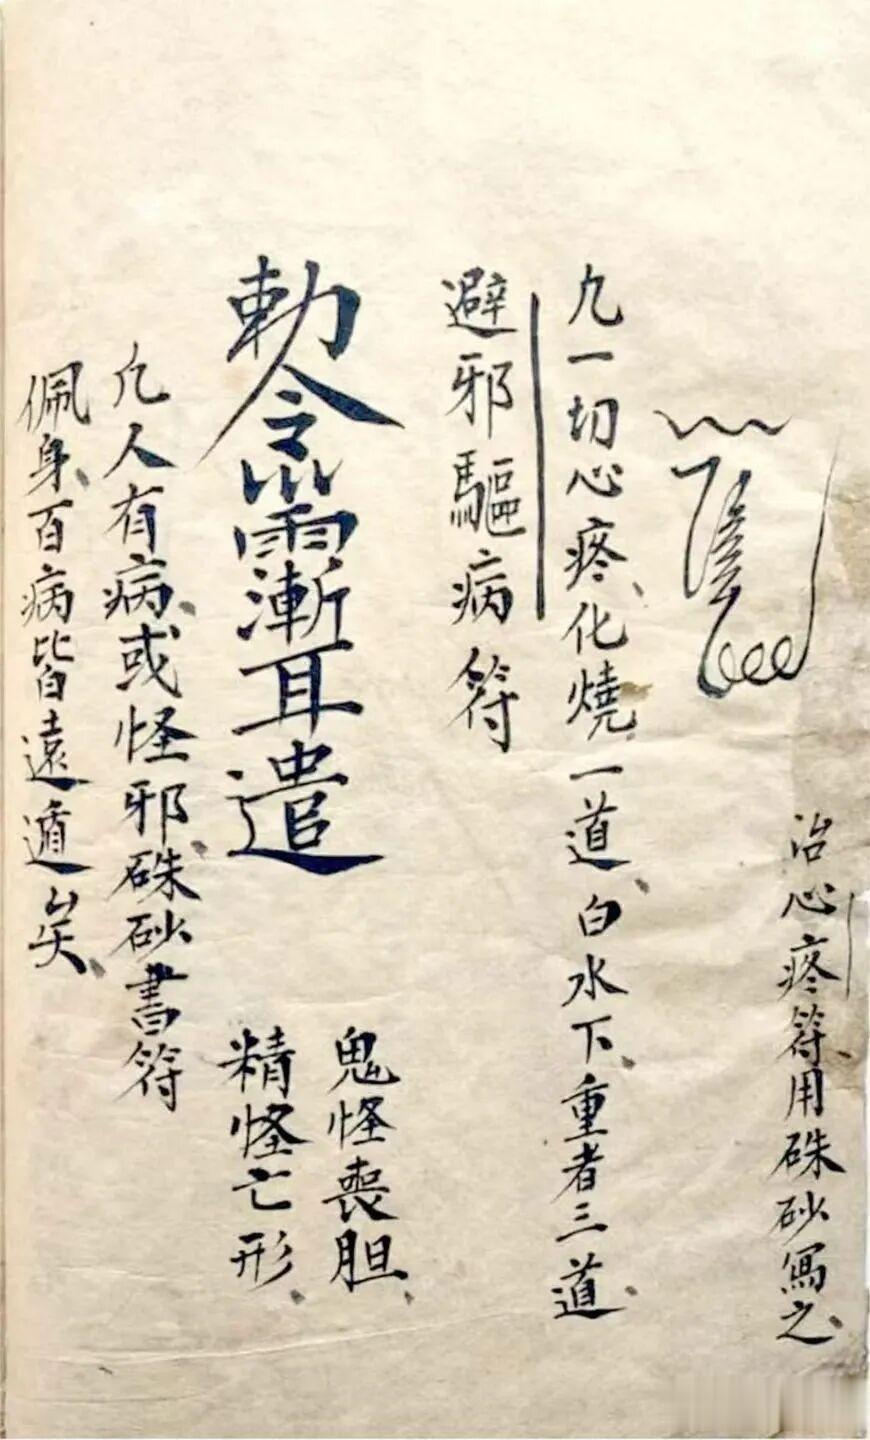 治心疼符用硃砂寫之
凡一切心疼化燒一道白水下重者三道
避邪驅病符
勅令
雨漸耳遣
鬼怪喪胆
精怪亡形
凡人有病或怪邪硃砂書符
佩身百病皆遠遁矣